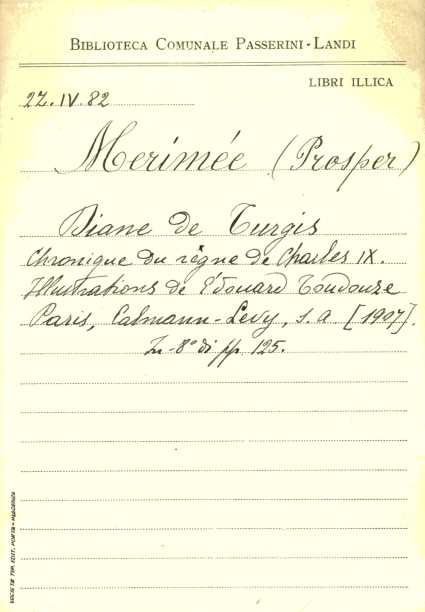 BIBLIOTECA COMUNALE PASSERINI-LANDI
LIBRI ILLICA
2Z.IV.82
Merimée (Prosper)
Diane de Turgis
Chronique du règne de Charles IX.
Illustrations de Édouard Toudouze
Paris, Calmann-Levy, s.a [1907].
In-8° di pp. 125.
SOCIETÀ TIP. EDIT. PORTA - PIACENZA